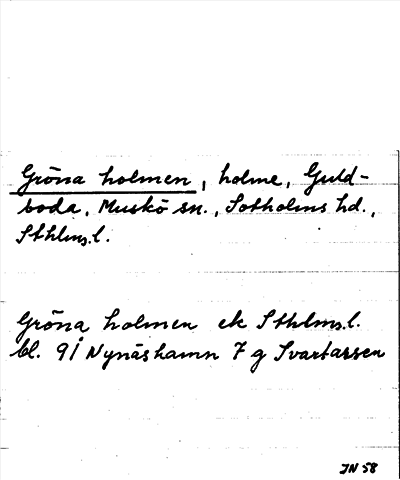 Gröna holmen, holme, Guld-
boda, Muskö sn., Sotholms hd.,
Sthlms. l.
Gröna holmen ek Sthlms. l.
bl. 9 I Nynäshamn 7 g Svartarsen
IN 58